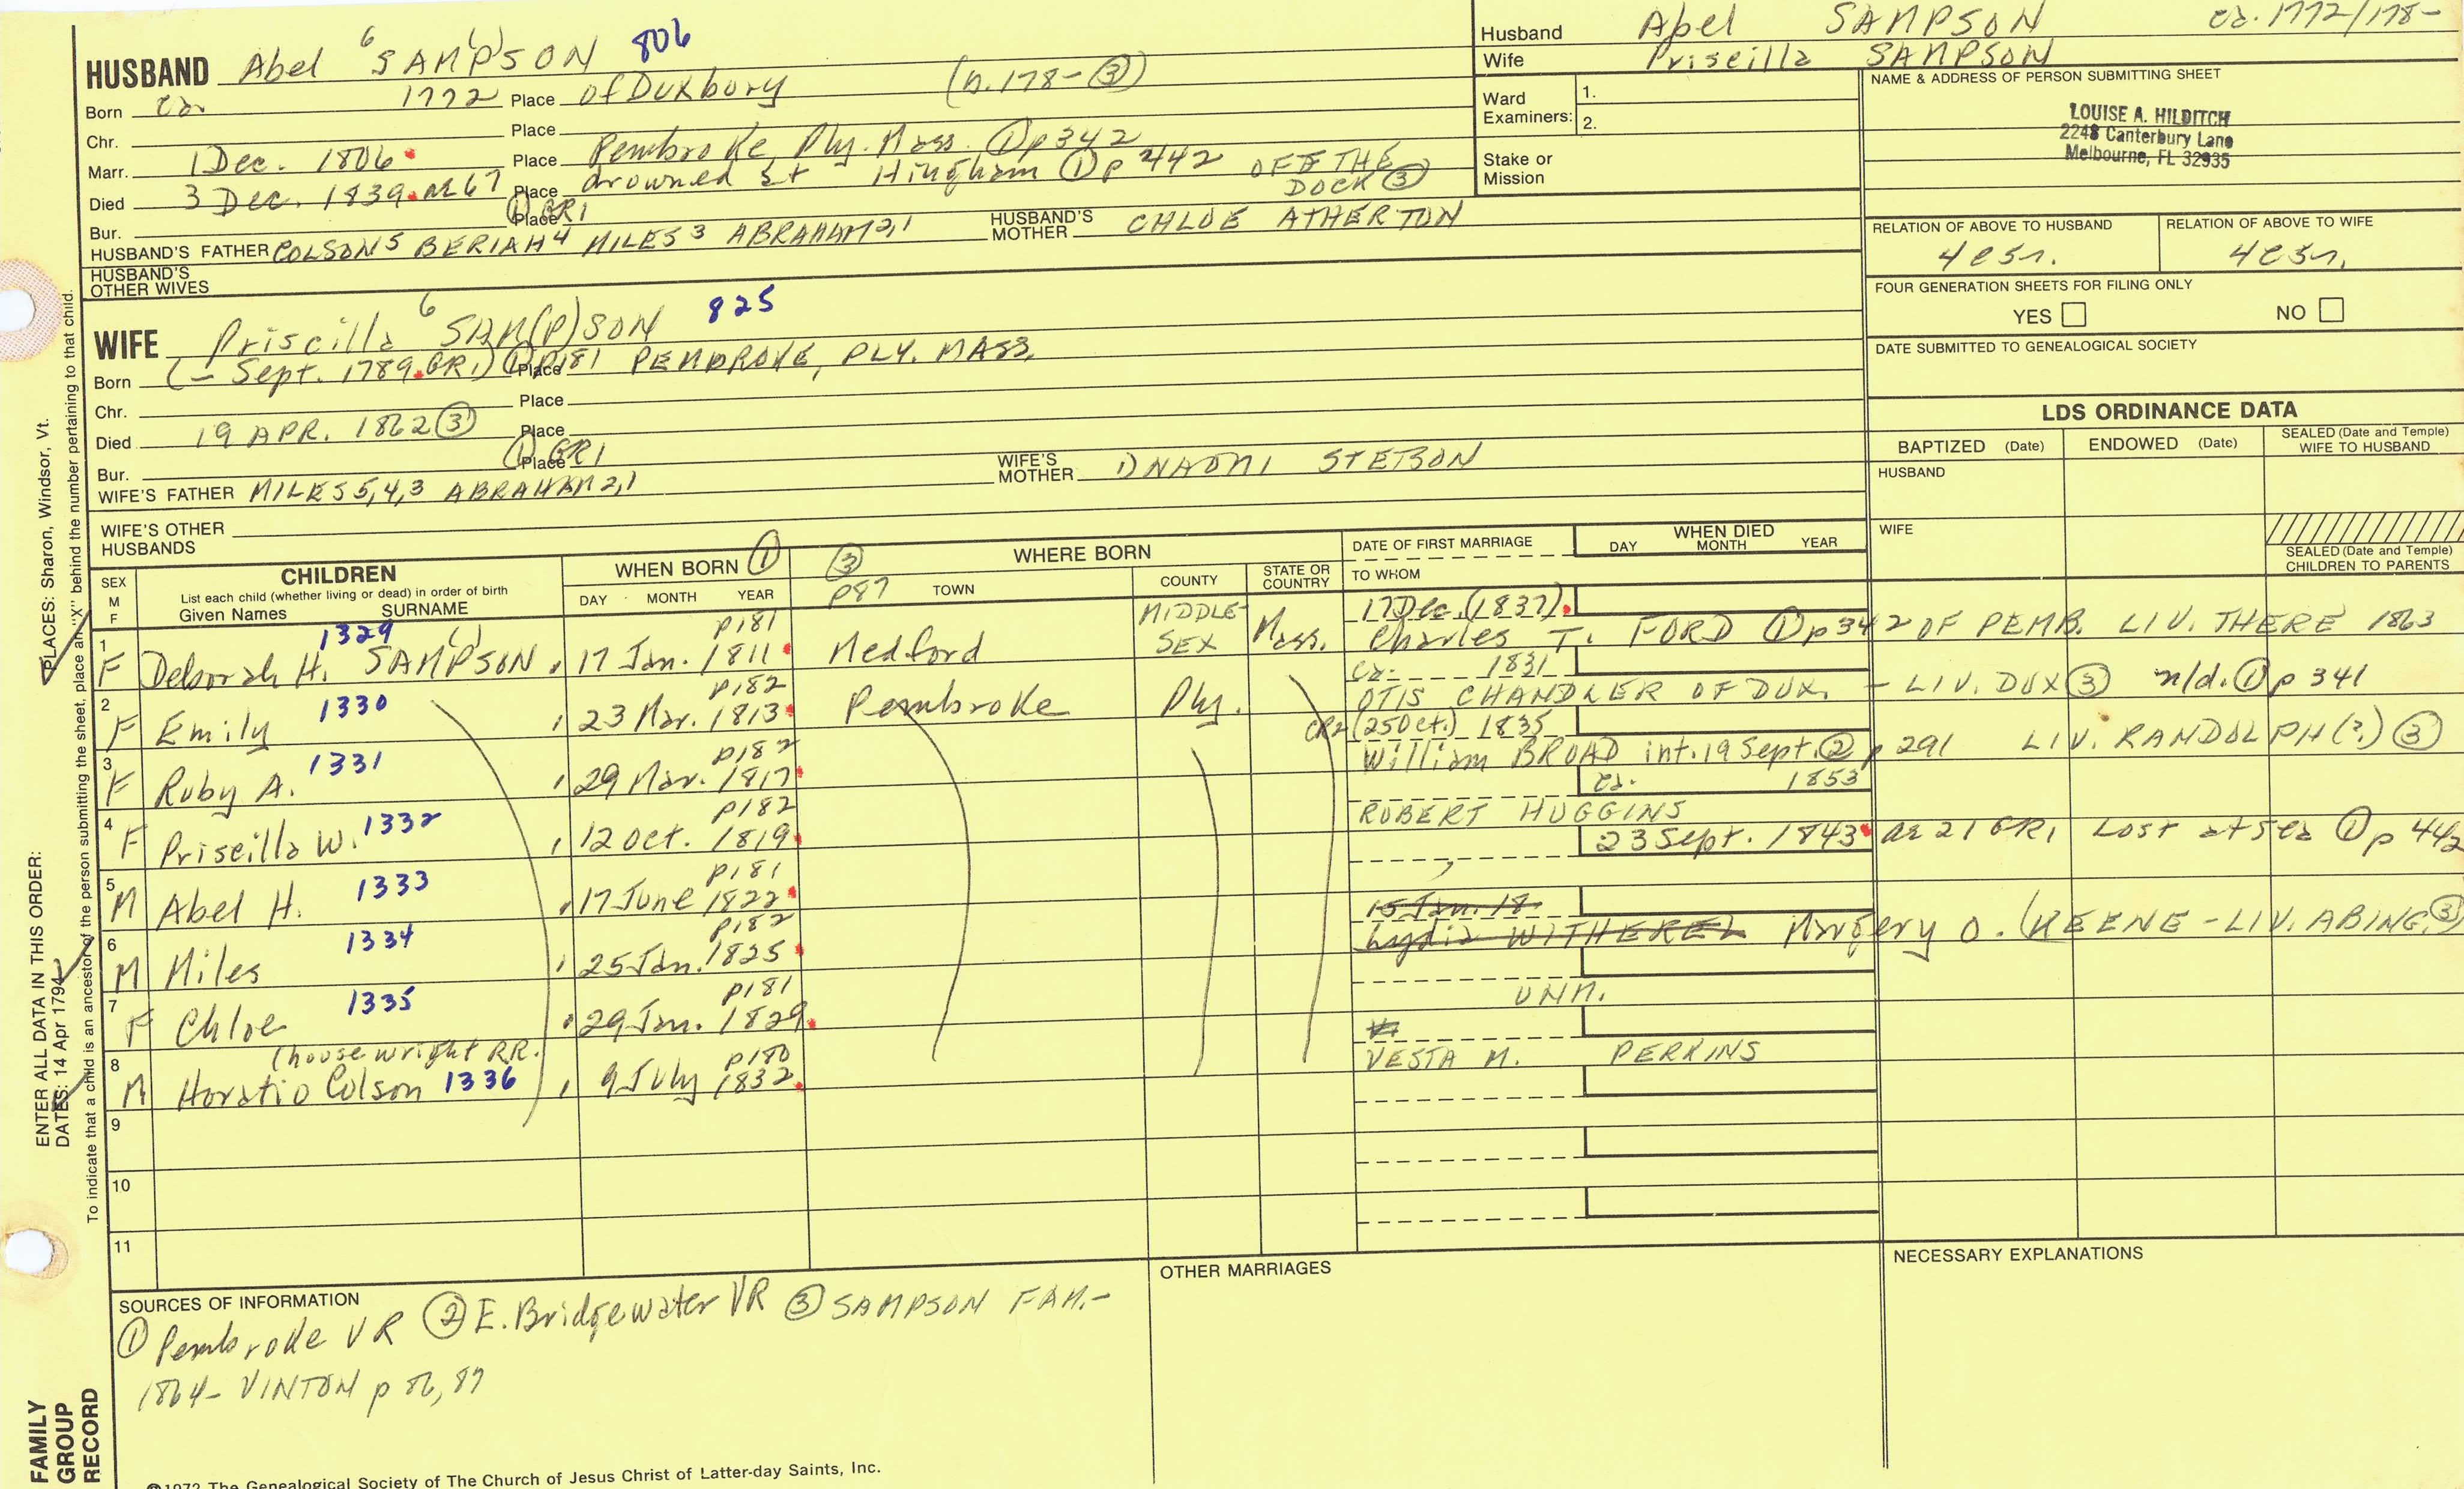 HUSBAND Abel 6 SAM(P)SON 806
Born ca. 1772 Place of Duxbury (b. 178- ③)
Chr. Place
Marr. 1 Dec. 1806 Place Pembroke, Ply. Mass. ① p 342
Died 3 Dec. 1839 ae 67 Place drowned at Hingham ① p 442 OFF THE DOCK ③
Bur. Place ① GR1
HUSBAND'S FATHER COLSON5 BERIAH4 MILES3 ABRAHAM2,1 HUSBAND'S MOTHER CHLOE ATHERTON
HUSBAND'S OTHER WIVES
Husband Abel SAMPSON ca. 1772/178-
Wife Priscilla SAMPSON
Ward Examiners: 1.
2.
Stake or Mission
NAME & ADDRESS OF PERSON SUBMITTING SHEET
LOUISE A. HILDITCH
2248 Canterbury Lane
Melbourne, FL 32935
RELATION OF ABOVE TO HUSBAND RELATION OF ABOVE TO WIFE
4 csn. 4 csn.
FOUR GENERATION SHEETS FOR FILING ONLY
YES NO
DATE SUBMITTED TO GENEALOGICAL SOCIETY
WIFE Priscilla 6 SAM(P)SON 825
Born (- Sept. 1789. GR1) Place ① p181 PEMBROKE, PLY. MASS.
Chr. Place
Died 19 APR. 1862 ③ Place
Bur. Place ① GR1
WIFE'S FATHER MILES5,4,3 ABRAHAM2,1 WIFE'S MOTHER 1) NAOMI STETSON
WIFE'S OTHER HUSBANDS
LDS ORDINANCE DATA
BAPTIZED (Date) ENDOWED (Date) SEALED (Date and Temple) WIFE TO HUSBAND
HUSBAND
WIFE
SEALED (Date and Temple) CHILDREN TO PARENTS
SEX M F CHILDREN List each child (whether living or dead) in order of birth Given Names SURNAME
WHEN BORN ① DAY MONTH YEAR
③ p87 WHERE BORN TOWN COUNTY STATE OR COUNTRY
DATE OF FIRST MARRIAGE TO WHOM
WHEN DIED DAY MONTH YEAR
1 F Deborah H. SAM(P)SON 1329 17 Jan. 1811 p181 Medford MIDDLESEX Mass. 17 Dec. (1837). Charles T. FORD ① p 342 OF PEMB. LIV. THERE 1863
2 F Emily 1330 23 Mar. 1813 p182 Pembroke Ply. ca. 1831 OTIS CHANDLER OF DUX. - LIV. DUX ③ n/d. ① p 341
3 F Ruby A. 1331 29 Mar. 1817 p182 CR2 (25 Oct.) 1835 William BROAD int. 19 Sept. ② p 291 LIV. RANDOLPH (?) ③
4 F Priscilla W. 1332 12 Oct. 1819 p182 ca. 1853 ROBERT HUGGINS
5 M Abel H. 1333 17 June 1822 p181 23 Sept. 1843 ae 21 GR1 Lost at sea ① p 442
6 M Miles 1334 25 Jan. 1825 p182 15 Jan. 18 Lydia WITHEREL Margery O. KEENE - LIV. ABING. ③
7 F Chloe 1335 29 Jan. 1829 p181 UNM.
8 M Horatio Colson 1336 (housewright RR. 9 July 1832 p180 VESTA M. PERKINS
9
10
11
SOURCES OF INFORMATION
① Pembroke VR ② E. Bridgewater VR ③ SAMPSON FAM.-
1864- VINTON p 86, 87
OTHER MARRIAGES
NECESSARY EXPLANATIONS
©1972 The Genealogical Society of The Church of Jesus Christ of Latter-day Saints, Inc.
FAMILY GROUP RECORD
ENTER ALL DATA IN THIS ORDER:
DATES: 14 Apr 1794
PLACES: Sharon, Windsor, Vt.
To indicate that a child is an ancestor of the person submitting the sheet, place an "X" behind the number pertaining to that child.